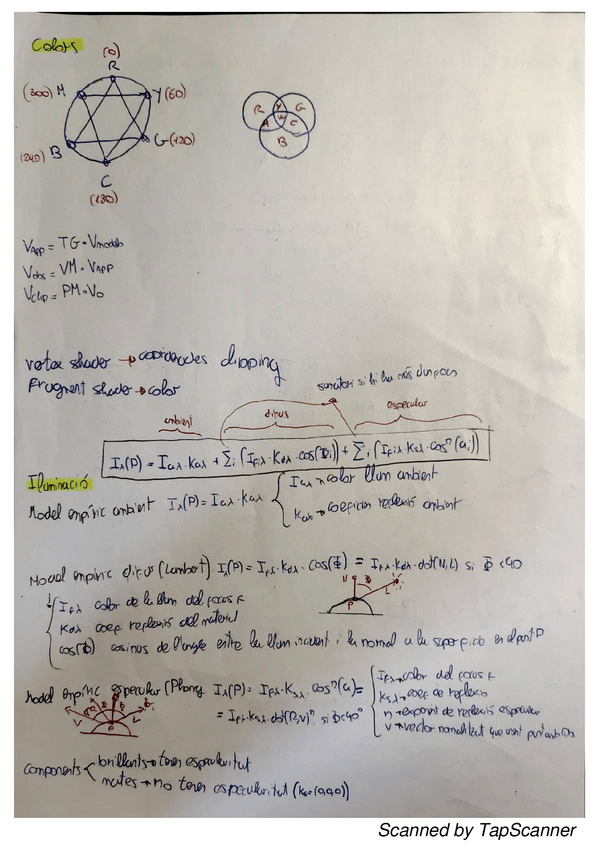 Colors
(0)
R
(300) M
Y (60)
B
(240)
G (120)
C
(180)
R Y G
W C
B
V_App = TG · V_models
V_obs = VM · V_App
V_clip = PM · V_o
vertex shader → coordenades clipping
Fragment shader → color
sumatori si hi ha més d'un focus
ambient difus especular
I_λ(P) = I_aλ · K_aλ + Σ_i (I_fiλ · K_dλ · cos(Φ_i)) + Σ_i (I_fiλ · K_sλ · cos^n(α_i))
Iluminació
Model empíric ambient I_λ(P) = I_aλ · K_aλ
I_aλ → color llum ambient
K_aλ → coeficient reflexió ambient
Model empíric difús (Lambert) I_λ(P) = I_fλ · K_dλ · cos(Φ) = I_fλ · K_dλ · dot(N,L) si Φ < 90
N Φ L
P
I_fλ color de la llum del focus f
K_dλ coef reflexió del material
cos(Φ) cosinus de l'angle entre la llum incident i la normal a la superfície en el punt P
Model empíric especular (Phong I_λ(P) = I_fλ · K_sλ · cos^n(α) =
= I_fλ · K_sλ · dot(R,v)^n si Φ < 90°
I_fλ → color del focus f
K_sλ → coef de reflexió
n → exponent de reflexió especular
v → vector normalitzat que uneix punt amb Obs
Components
brillants → tenen especularitat
mates → no tenen especularitat (ks = (0,0,0))
Scanned by TapScanner